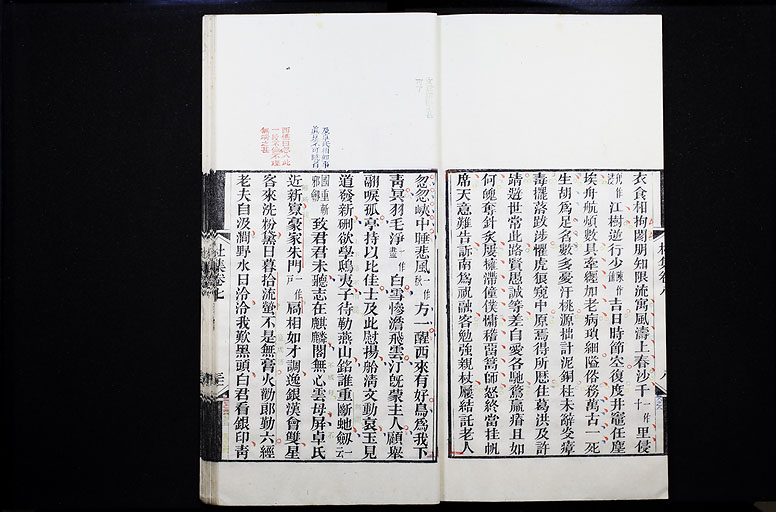 衣食相拘閡朋知限流寓風濤上春沙千一作十里侵
江樹逆行少吉日時節空復度井竈任塵
埃舟航煩數具牽纏加老病瑣細隘俗務萬古一死
生胡為足名數多憂汙桃源拙計泥銅柱未辭炎瘴
毒擺落跋涉懼虎狼窺中原焉得所歷住葛洪及許
靖避世常此路賢愚誠等差自愛各馳騖羸瘠且如
何魄奪針灸屢擁滯僮僕慵稽留篙師怒終當挂帆
席天意難告訴南為祝融客勉強親杖屨結託老人
忽忽峽中睡悲風一作秋方一醒西來有好鳥為我下
青冥羽毛淨一作盡白雪慘澹飛雲汀既蒙主人顧舉
翮唳孤亭持以比佳士及此慰揚舲清文動哀玉見
道發新硎欲學鴟夷子待勒燕山銘誰重斷蛇劒
致君君未聽志在麒麟閣無心雲母屏卓氏
近新寡豪家朱門一作戶扃相如才調逸銀漢會雙星
客來洗粉黛日暮拾流螢不是無膏火勸郎勤六經
老夫自汲澗野水日泠泠我歎黑頭白君看銀印青
杜集卷七